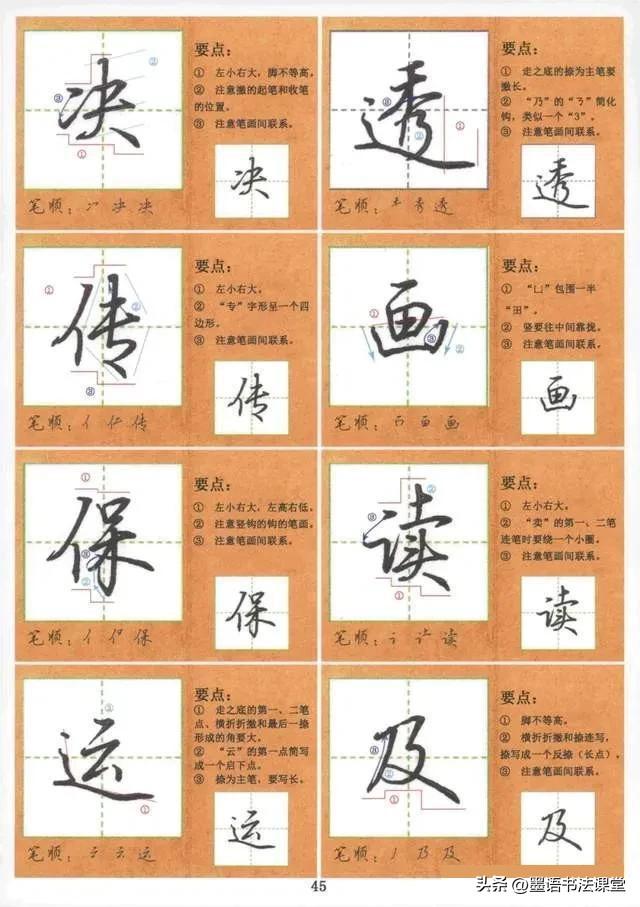 决
要点：
① 左小右大，脚不等高。
② 注意撇的起笔和收笔
的位置。
③ 注意笔画间联系。
决
笔顺：冫 决 决
透
要点：
① 走之底的捺为主笔要
撇长。
② “乃”的“ㄋ”简化
钩，类似一个“3”。
③ 注意笔画间联系。
透
笔顺：秀 透
传
要点：
① 左小右大。
② “专”字形呈一个四
边形。
③ 注意笔画间联系。
传
笔顺：亻 仁 传
画
要点：
① “凵”包围一半
“田”。
② 竖要往中间靠拢。
③ 注意笔画间联系。
画
笔顺：画
保
要点：
① 左小右大，左高右低。
② 注意竖钩的钩的笔画。
③ 注意笔画间联系。
保
笔顺：亻 保
读
要点：
① 左小右大。
② “卖”的第一、二笔
连笔时要绕一个小圈。
③ 注意笔画间联系。
读
笔顺：讠 读
运
要点：
① 走之底的第一、二笔
点、横折折撇和最后一捺
形成的角要大。
② “云”的第一点简写
成一个启下点。
③ 捺为主笔，要写长。
运
笔顺：云 运
及
要点：
① 脚不等高。
② 横折折撇和捺连写，
捺写成一个反捺（长点）。
③ 注意笔画间联系。
及
笔顺：丿 乃 及
45
头条 @墨语书法课堂